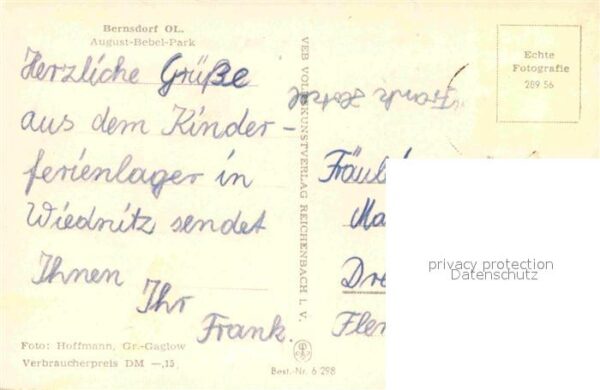 Bernsdorf OL.
August-Bebel-Park
Herzliche Grüße
aus dem Kinder-
ferienlager in
Wiednitz sendet
Ihnen
Ihr
Frank.
Foto: Hoffmann, Gr.-Gaglow
Verbraucherpreis DM —,15
VEB VOLKSKUNSTVERLAG REICHENBACH I. V.
Best.-Nr. 6 298
Echte
Fotografie
289 56
Frank
Fräul
Ma
Dre
Fler
privacy protection
Datenschutz